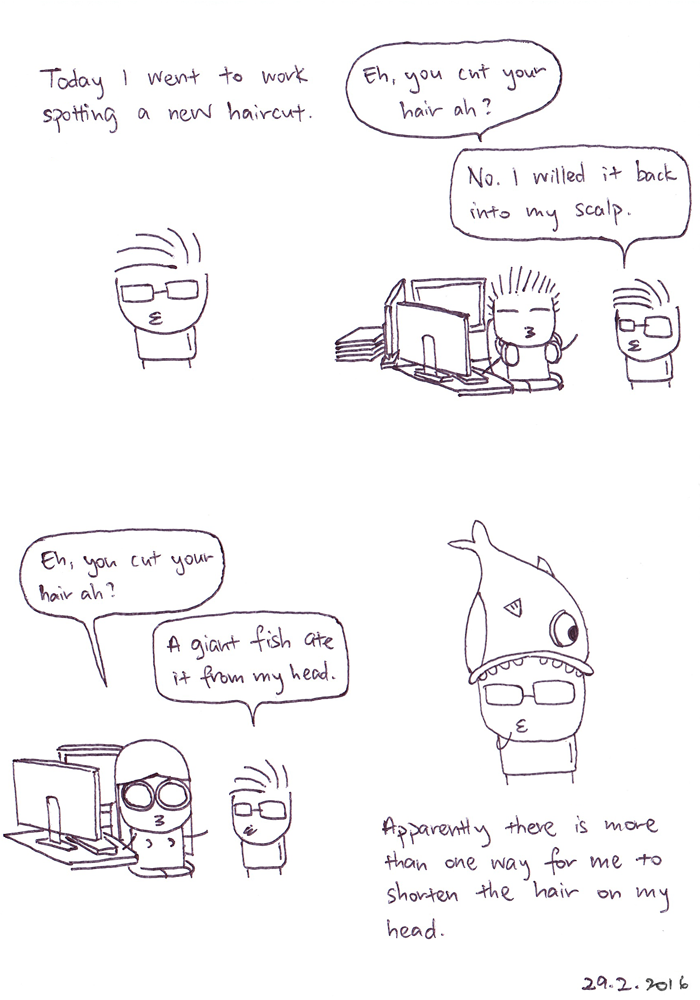 Today I went to work
spotting a new haircut.
Eh, you cut your
hair ah?
No. I willed it back
into my scalp.
Eh, you cut your
hair ah?
A giant fish ate
it from my head.
Apparently there is more
than one way for me to
shorten the hair on my
head.
29.2.2016